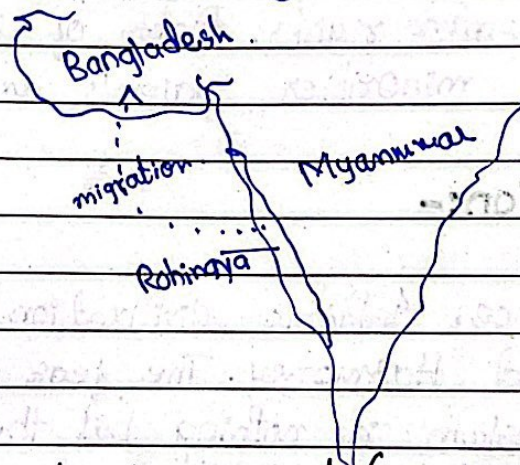 Bangladesh.
migration
Myanmar
Rohingya